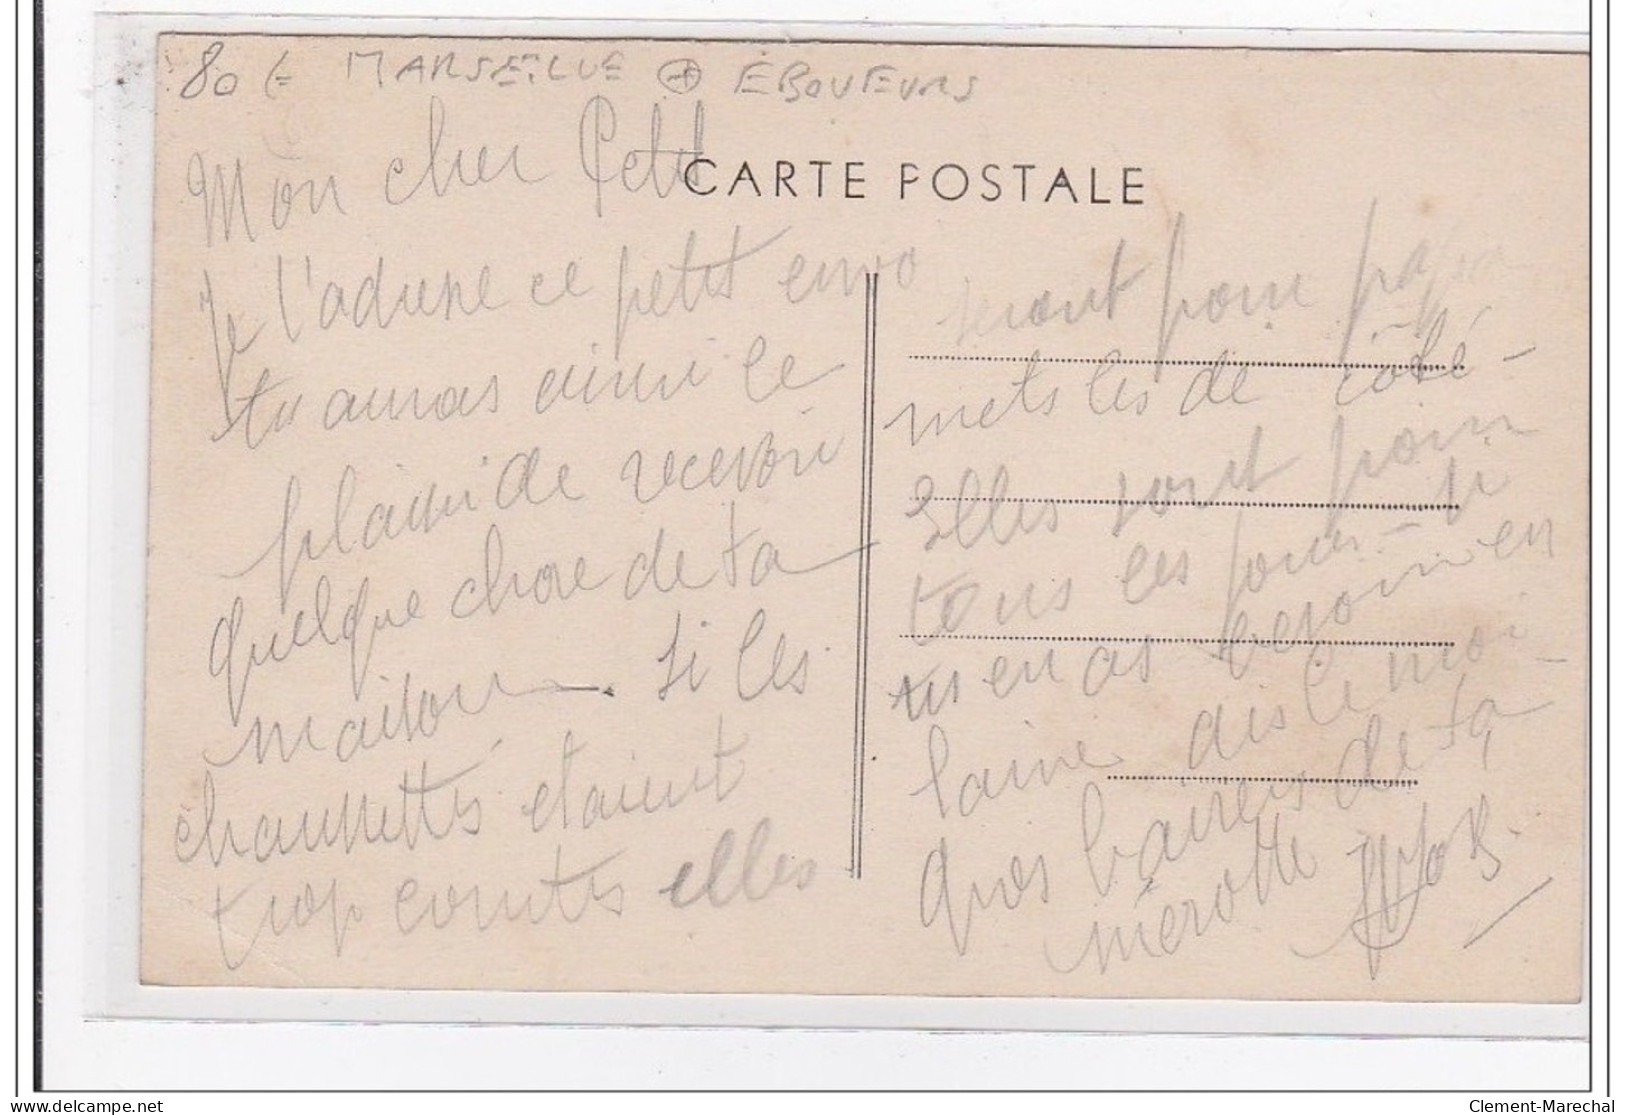 80 € MARSEILLE + ÉBOUEURS
CARTE POSTALE
Mon cher Petit
Je t'adresse ce petit envo
tu auras ainsi le
plaisir de recevoir
quelque chose de ta
maison. Si les
chaussettes étaient
trop courtes elles
seront pour papa
mets les de côté -
Elles sont pour
tous les jours - si
tu en as besoin en
laine dis le moi
Gros baisers de ta -
mérotte
delcampe.net
Clement-Marechal